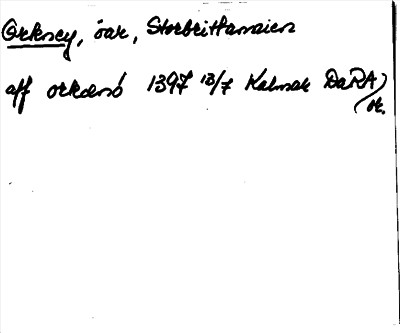 Orkney, öar, Storbritannien
aff orkœnö 1397 13/7 Kalmar DaRA
or.